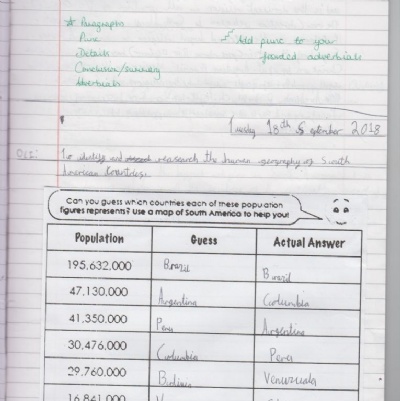 * Paragraphs
Punc
Details
Conclusion/summary
Adverbials
Add punc to your
fronted adverbials
Tuesday 18th September 2018
To and research the human geography of South
American Countries.
Can you guess which countries each of these population
figures represents? Use a map of South America to help you!
Population Guess Actual Answer
195,632,000 Brazil Brazil
47,130,000 Argentina Columbia
41,350,000 Peru Argentina
30,476,000 Columbia Peru
29,760,000 Bolivia Venuzuala
16,841,000